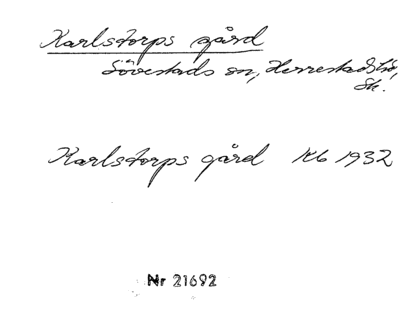 Karlstorps gård
Sövestads sn, Herrestads hd,
Sk.
Karlstorps gård Kb 1932
Nr 21692